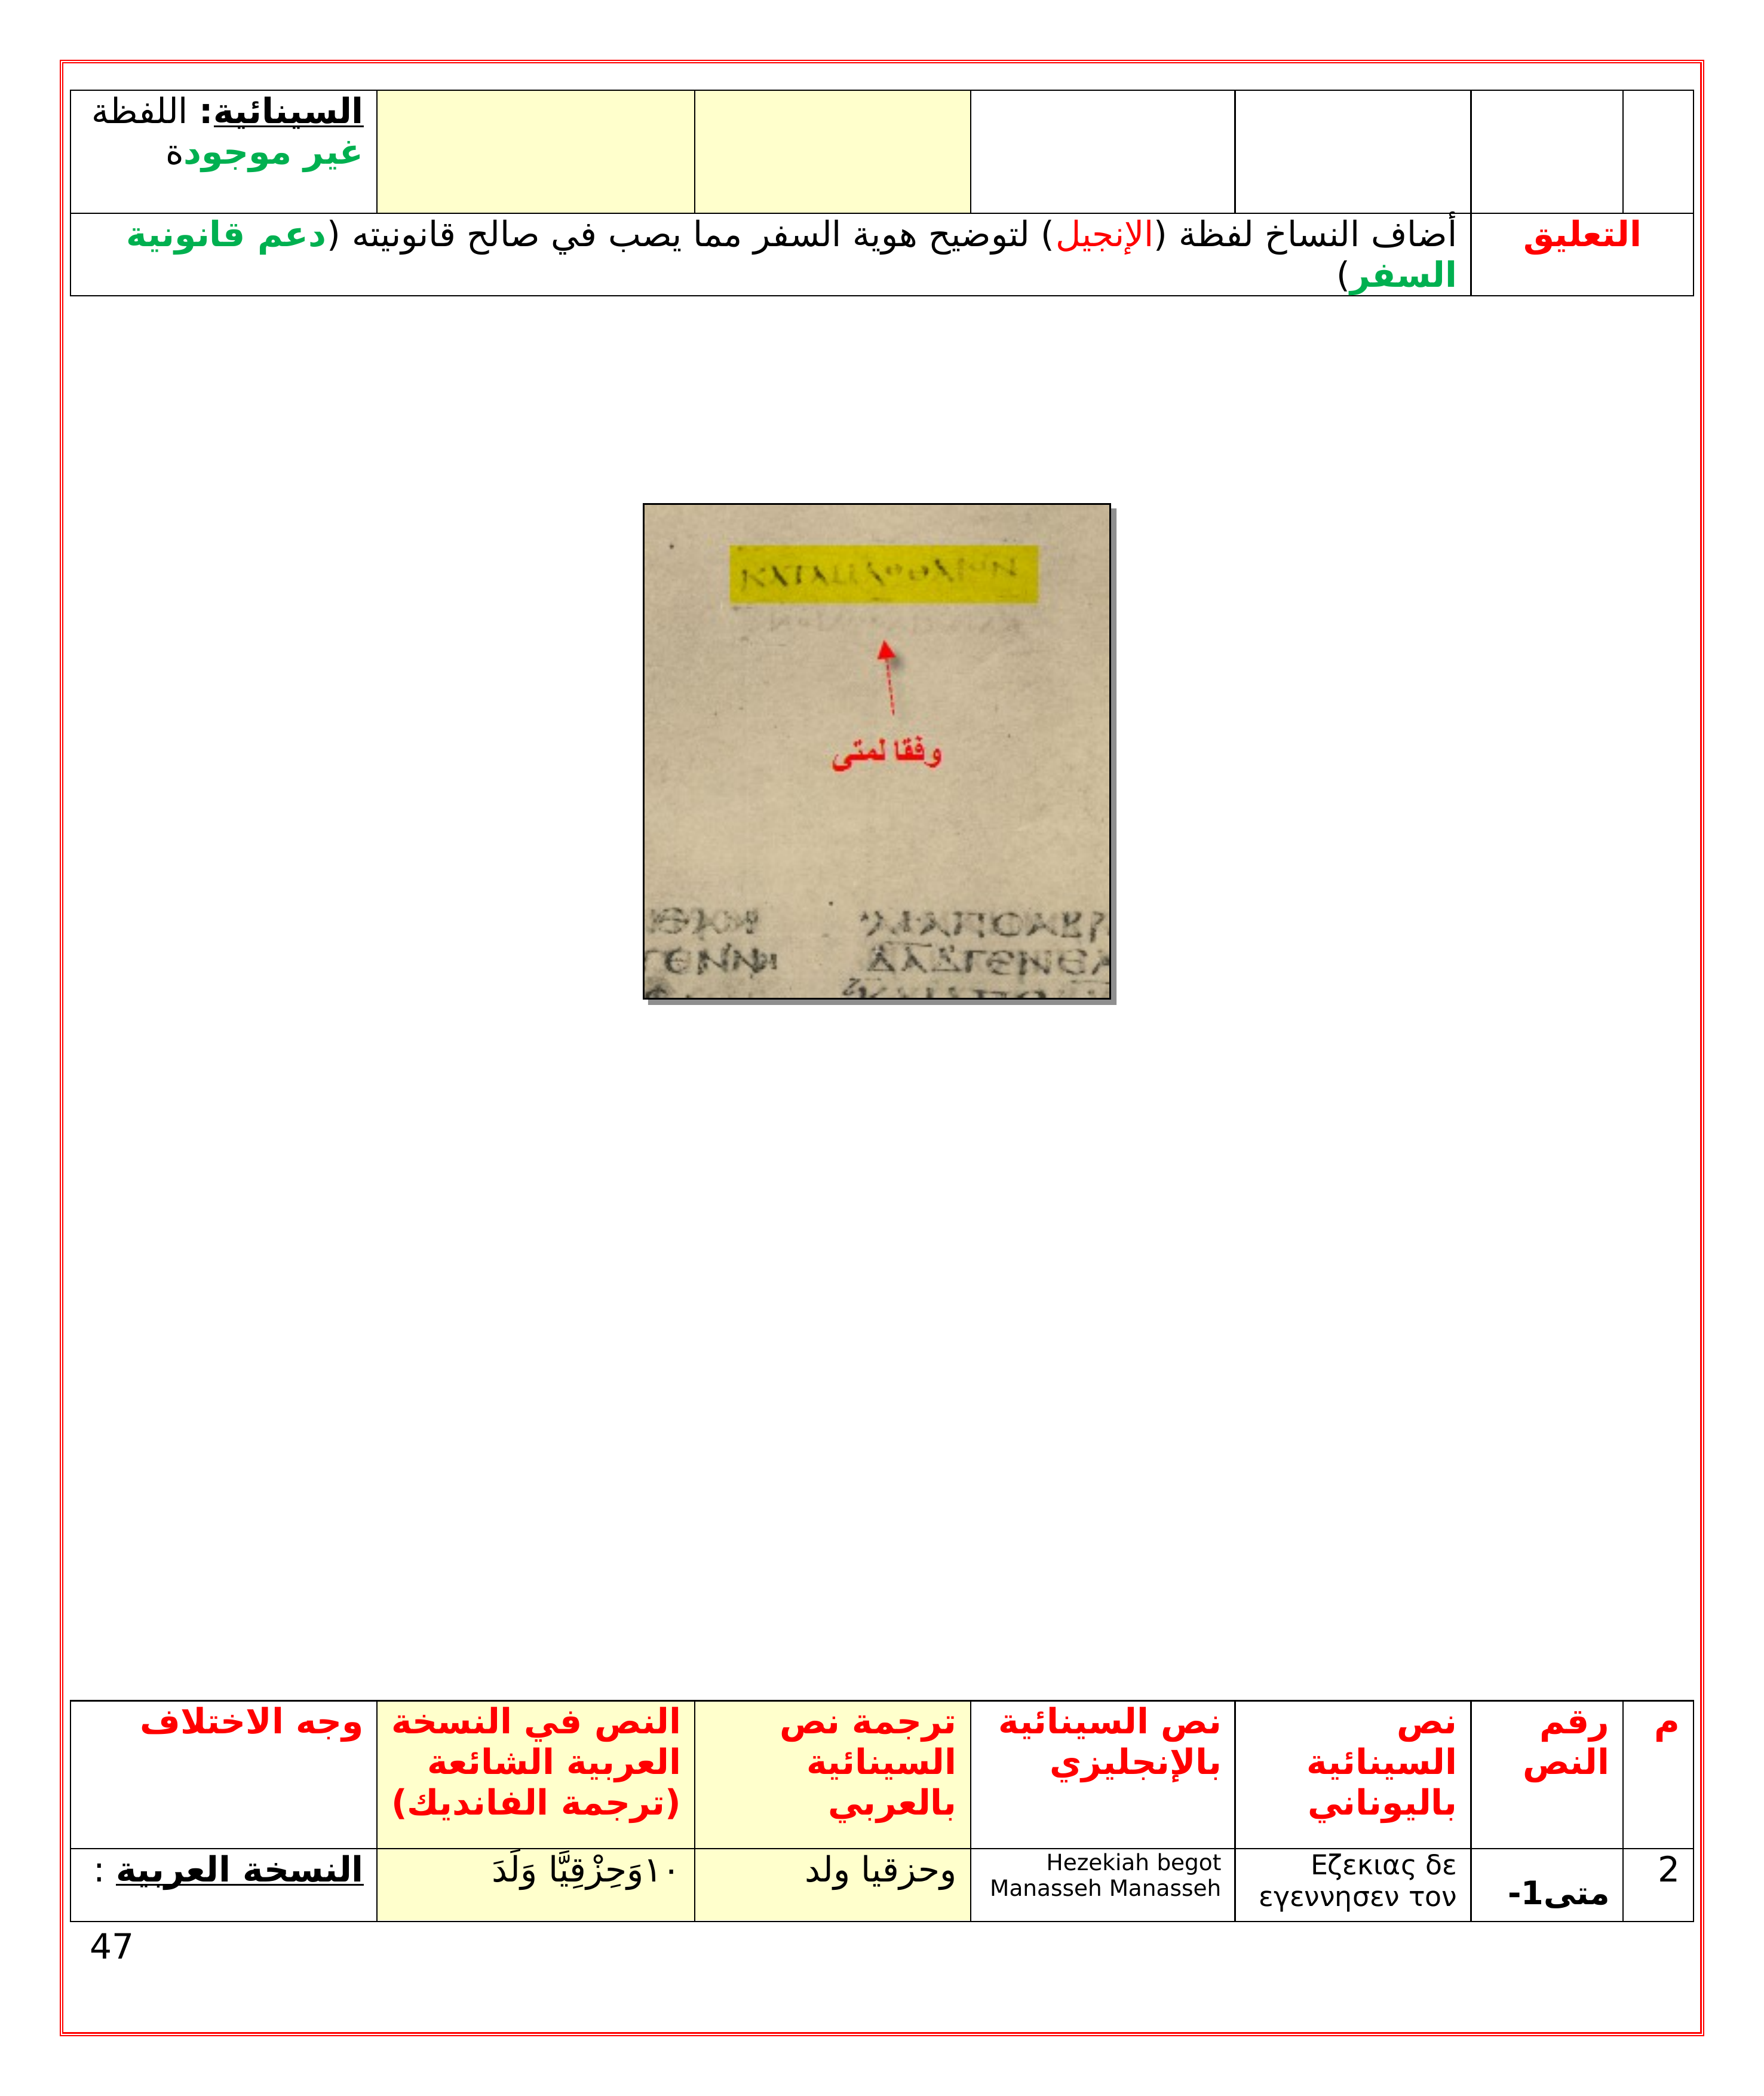 السينائية: اللفظة
غير موجودة
التعليق
أضاف النساخ لفظة (الإنجيل) لتوضيح هوية السفر مما يصب في صالح قانونيته (دعم قانونية
السفر)
وفقا لمتى
م
رقم
النص
نص
السينائية
باليوناني
نص السينائية
بالإنجليزي
ترجمة نص
السينائية
بالعربي
النص في النسخة
العربية الشائعة
(ترجمة الفانديك)
وجه الاختلاف
2
متى1-
Εζεκιας δε
εγεννησεν τον
Hezekiah begot
Manasseh Manasseh
وحزقيا ولد
١٠وَحِزْقِيَّا وَلَدَ
النسخة العربية :
47